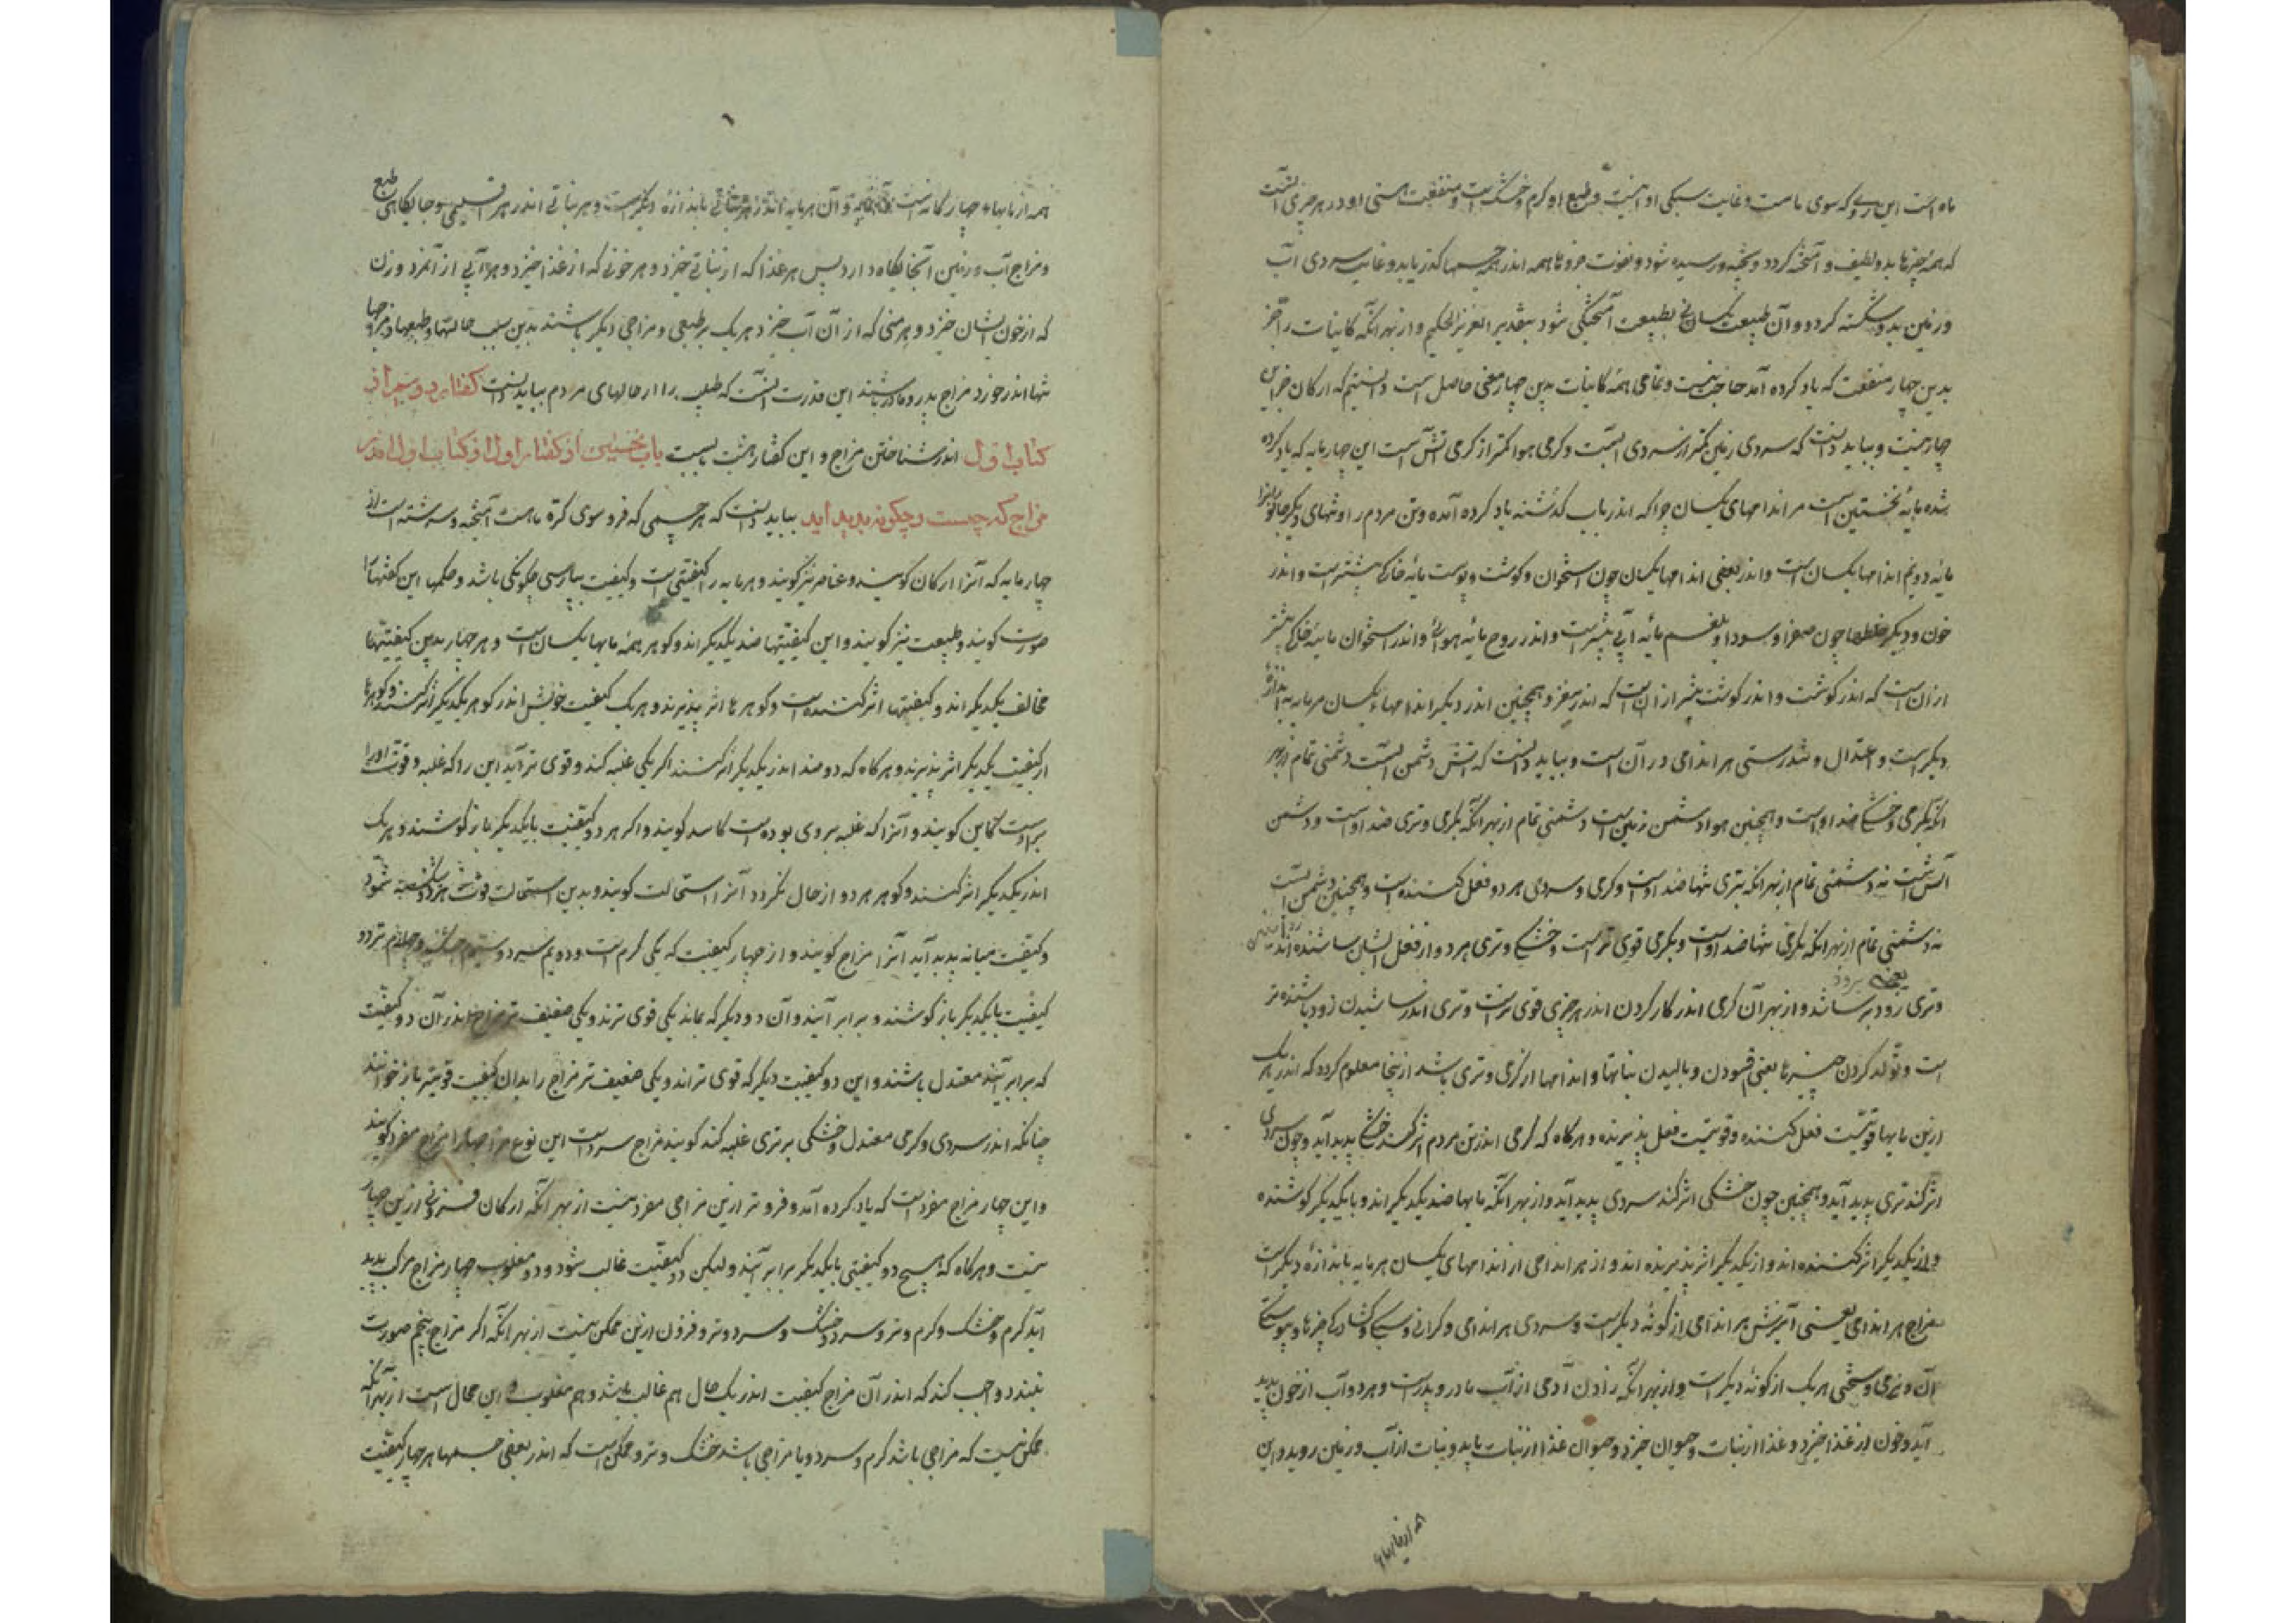 ماه است این روی که سوی ماست و غایت سبکی او اینست و طبع او گرم و خشک است و منفعت هستی او در هر چیزی آنست
که همه چیزها بدو لطیف و آمیخته گردد و پخته و رسیده شود و بقوت فروتا همه اندر همه جسمها گذر یابد و غایت سردی آب
و زمین بدو شکسته گردد و آن طبیعت یکسانی بطبیعت آمیختگی شود بتقدیر العزیز الحکیم و از بهر آنکه کاینات را جز
بدین چهار منفعت که یاد کرده آمد حاجت نیست و تمامی همه کاینات بدین چهار معنی حاصل است دانستیم که ارکان جز این
چهار نیست و بباید دانست که سردی زمین کمتر از سردی آبست و گرمی هوا کمتر از گرمی آتش است این چهار مایه که یاد کرده
شد مایه نخستین است مر اندامهای یکسان را که اندر باب گذشته یاد کرده آمده و تن مردم را و تنهای دیگر جانوران را
مایه دویم اندامها یکسان است و اندر بعضی اندامها یکسان چون استخوان و گوشت و پوست مایه خاکی بیشتر است و اندر
خون و دیگر خلطها چون صفرا و سودا و بلغم مایه آبی بیشتر است و اندر روح مایه هوائی و اندر استخوان مایه خاکی بیشتر
از آن است که اندر گوشت و اندر گوشت بیشتر از آن است که اندر مغز و همچنین اندر دیگر اندامها یکسان هر مایه باندازه
دیگر است و اعتدال و تندرستی هر اندامی در آن است و بباید دانست که آتش دشمن آبست دشمنی تمام از بهر
آنکه بگرمی و خشکی ضد اوست و همچنین هوا دشمن زمین است دشمنی تمام از بهر آنکه بگرمی و تری ضد اوست و دشمن
آتش است نه دشمنی تمام از بهر آنکه بتری تنها ضد اوست و گرمی و سردی هر دو فعل کننده است و همچنین دشمن آبست
نه دشمنی تمام از بهر آنکه بگرمی تنها ضد اوست و بگرمی قوی تر است و خشکی و تری هر دو از فعل ایشان ساشنده اند
یعنی برودد
و تری زود بر ساند و از بهر آن گرمی اندر کار کردن اندر هر چیزی قوی تر است و تری اندر ساشیدن زود باشنده تر
است و تولد کردن چیزها یعنی فزودن و بالیدن نباتها و اندامها از گرمی و تری باشد از اینجا معلوم گردد که اندر هر یک
ازین مایها قوتیست فعل کننده و قوتیست فعل پذیرنده و هرگاه که گرمی اندر تن مردم اثر کند خشکی پدید آید و چون سردی
اثر کند تری پدید آید و همچنین چون خشکی اثر کند سردی پدید آید و از بهر آنکه مایها ضد یکدیگر اند و با یکدیگر کوشنده
و از یکدیگر اثر کننده اند و از یکدیگر اثر پذیرنده اند و از هر اندامی از اندامهای یکسان هر مایه باندازه دیگر است
مزاج هر اندامی یعنی آمیزش هر اندامی از گونه دیگر است و سردی هر اندامی و گرانی و سبکی و گشادگی چیزها و پیوستگی
آن و نرمی و سختی هر یک از گونه دیگر است و از بهر آنکه زادن آدمی از آب مادر و پدر است و هر دو آب از خون پدید
آید و خون از غذا خیزد و غذا از نبات و حیوان خیزد و حیوان غذا از نبات یابد و نبات از آب و زمین روید و این
همه از مایهاء چهارگانه است و آن هر مایه اندر هر نباتی باندازه دیگر است و هر نباتی اندر هر اقلیمی و جایگاهی طبع
و مزاج آب و زمین آنجایگاه دارد پس هر غذا که از نباتی خیزد و هر خونی که از غذا خیزد و هر آبی از آن مرد و زن
که از خون ایشان خیزد و هر منی که از آن آب خیزد هر یک بر طبعی و مزاجی دیگر باشند بدین سبب حالتها و طبعها و مزاجها
تنها اندر خورد مزاج پدر و مادر باشند این قدرت آنست که طبیب را از حالهای مردم بباید دانست گفتار دویم از
کتاب اول اندر شناختن مزاج و این گفتار هشت بابست باب نخستین از گفتار اول از کتاب اول اندر
مزاج که چیست و چگونه پدید آید بباید دانست که هر جسمی که فرو سوی کره ماه است آمیخته و سرشته است از
چهار مایه که آنرا ارکان گویند و عناصر نیز گویند و هر مایه را کیفیتی است و کیفیت بپارسی چگونگی باشد و حکما این کیفیتها را
صورت گویند و طبیعت نیز گویند و این کیفیتها ضد یکدیگر اند و گوهر همه مایها یکسان است و هر چهار بدین کیفیتها
مخالف یکدیگر اند و کیفیتها اثر کننده است و گوهرها اثر پذیرند و هر یک کیفیت خویش اندر گوهر یکدیگر اثر کنند و گوهرها
از کیفیت یکدیگر اثر پذیرند و هرگاه که دو ضد اندر یکدیگر اثر کنند اگر یکی غلبه کند و قوی تر آید این را که غلبه و قوت او را
بر اوست کاین گویند و آنرا که غلبه بر وی بوده است فاسد گویند و اگر هر دو کیفیت با یکدیگر باز کوشند و هر یک
اندر یکدیگر اثر کنند و گوهر هر دو از حال نگردد آنرا استحالت گویند و بدین استحالت قوت هر دو شکسته شود
و کیفیت میانه پدید آید آنرا مزاج گویند و از چهار کیفیت که یکی گرم است و دویم سرد و سیوم خشک و چهارم تر دو
کیفیت با یکدیگر باز کوشند و برابر آیند و آن دو دیگر که بماند یکی قوی تر اند و یکی ضعیف تر مزاج اندر آن دو کیفیت
که برابر آیند معتدل باشند و این دو کیفیت دیگر که قوی تر اند و یکی ضعیف تر مزاج را بدان کیفیت قویتر باز خوانند
چنانکه اندر سردی و گرمی معتدل و خشکی بر تری غلبه کند گویند مزاج سرد است این نوع مزاجها را مزاج مفرد گویند
و این چهار مزاج مفرد است که یاد کرده آمد و فرو تر ازین مزاجی مفرد نیست از بهر آنکه ارکان فزونی ازین چهار
نیست و هرگاه که هیچ دو کیفیتی با یکدیگر برابر آیند ولیکن دو کیفیت غالب شود و دو مغلوب چهار مزاج مرکب پدید
آید گرم و خشک و گرم و تر و سرد و خشک و سرد و تر و فزون ازین ممکن نیست از بهر آنکه اگر مزاج پنجم صورت
بندد واجب کند که اندر آن مزاج کیفیت اندر یک حال هم غالب باشد و هم مغلوب و این محال است از بهر آنکه
ممکن نیست که مزاجی باشد گرم و سرد و یا مزاجی باشد خشک و تر و ممکن است که اندر بعضی جسمها هر چهار کیفیت